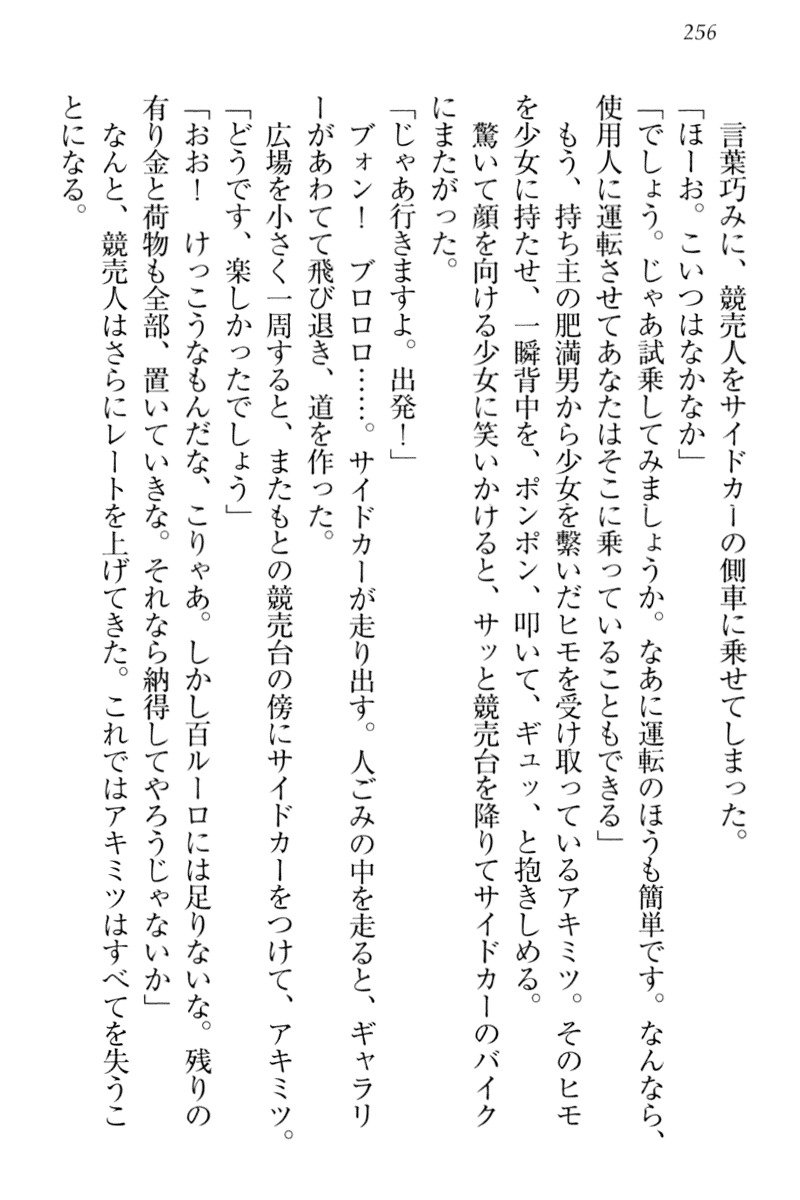 256
言葉巧みに、競売人をサイドカーの側車に乗せてしまった。
「ほーお。こいつはなかなか」
「でしょう。じゃあ試乗してみましょうか。なあに運転のほうも簡単です。なんなら、
使用人に運転させてあなたはそこに乗っていることもできる」
もう、持ち主の肥満男から少女を繋いだヒモを受け取っているアキミツ。そのヒモ
を少女に持たせ、一瞬背中を、ポンポン、叩いて、ギュッ、と抱きしめる。
驚いて顔を向ける少女に笑いかけると、サッと競売台を降りてサイドカーのバイク
にまたがった。
「じゃあ行きますよ。出発！」
ブォン！　ブロロロ……。サイドカーが走り出す。人ごみの中を走ると、ギャラリ
ーがあわてて飛び退き、道を作った。
広場を小さく一周すると、またもとの競売台の傍にサイドカーをつけて、アキミツ。
「どうです、楽しかったでしょう」
「おお！　けっこうなもんだな、こりゃあ。しかし百ルーロには足りないな。残りの
有り金と荷物も全部、置いていきな。それなら納得してやろうじゃないか」
なんと、競売人はさらにレートを上げてきた。これではアキミツはすべてを失うこ
とになる。